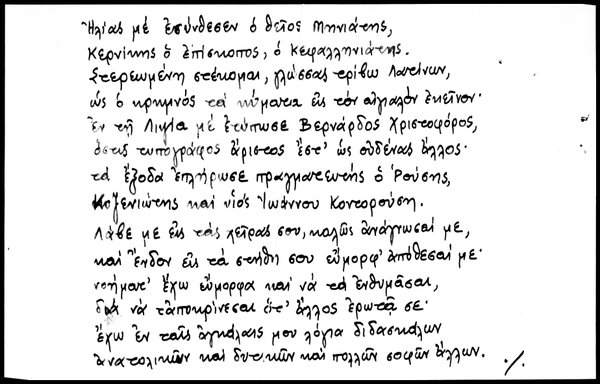 Ἠλίας μέ ἐσύνθεσεν ὁ θεῖος Μηνιάτης,
Κερνίκης ὁ ἐπίσκοπος, ὁ Κεφαλληνιάτης.
Στερεωμένη στέκομαι, γλώσσας τρίβω Λατίνων,
ὡς ὁ κρημνός τά κύματα εἰς τόν αἰγιαλόν ἐκεῖνον·
Ἐν τῇ Λιψίᾳ μέ ἐτύπωσε Βερνάρδος Χριστοφόρος,
ὅστις τυπογράφος ἄριστος ἔστ' ὡς οὐδένας ἄλλος·
τά ἔξοδα ἐπλήρωσε πραγματευτής ὁ Ῥούσης,
Κοζενιώτης καί υἱός Ἰωάννου Κοντορούση.
Λάβε με εἰς τάς χεῖρας σου, καλῶς ἀνάγνωσαί με,
καί ἔνδον εἰς τά στήθη σου εὔμορφ' ἀπόθεσαί με·
νοήματ' ἔχω εὔμορφα καί νά τά ἐνθυμᾶσαι,
διά νά τἀποκρίνεσαι ὅτ' ἄλλος ἐρωτᾷ σε·
ἔχω ἐν ταῖς ἀγκάλαις μου λόγια διδασκάλων
ἀνατολικῶν καί δυτικῶν καί πολλῶν σοφῶν ἄλλων. ./.